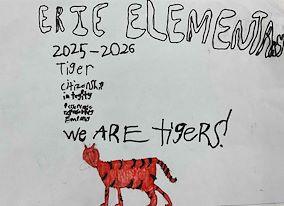 ERIE ELEMENTARY
2025-2026
Tiger
citizenship
integrity
Empathy
WE ARE tigers!